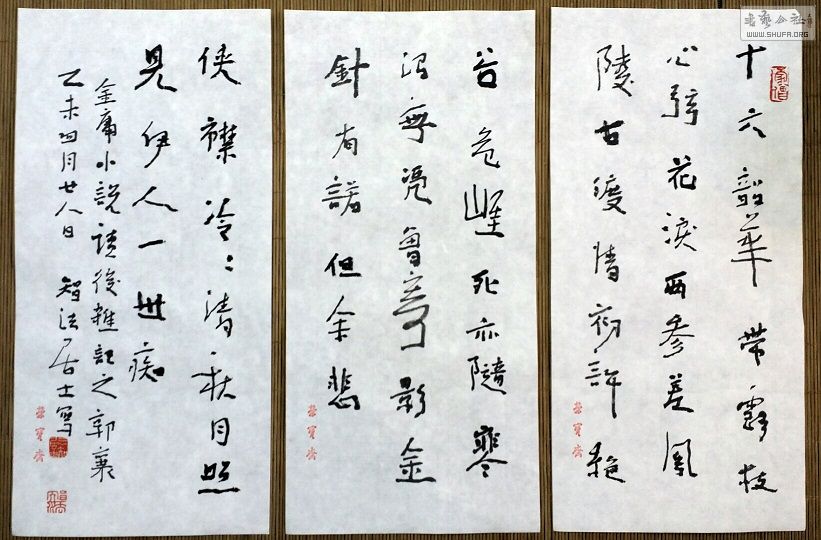 書藝公社
WWW.SHUFA.ORG
十六韶華 帶露枝
心弦花淚兩參差 風
陵古渡情初許 絕
榮寶齋
谷危崖死亦隨 寒
沼無曾寄影 金
針有諾但余悲
榮寶齋
俠襟冷〻清秋月照
見伊人一世痴
金庸小說讀後雜記之郭襄
乙未四月廿八日 智法居士寫
榮寶齋